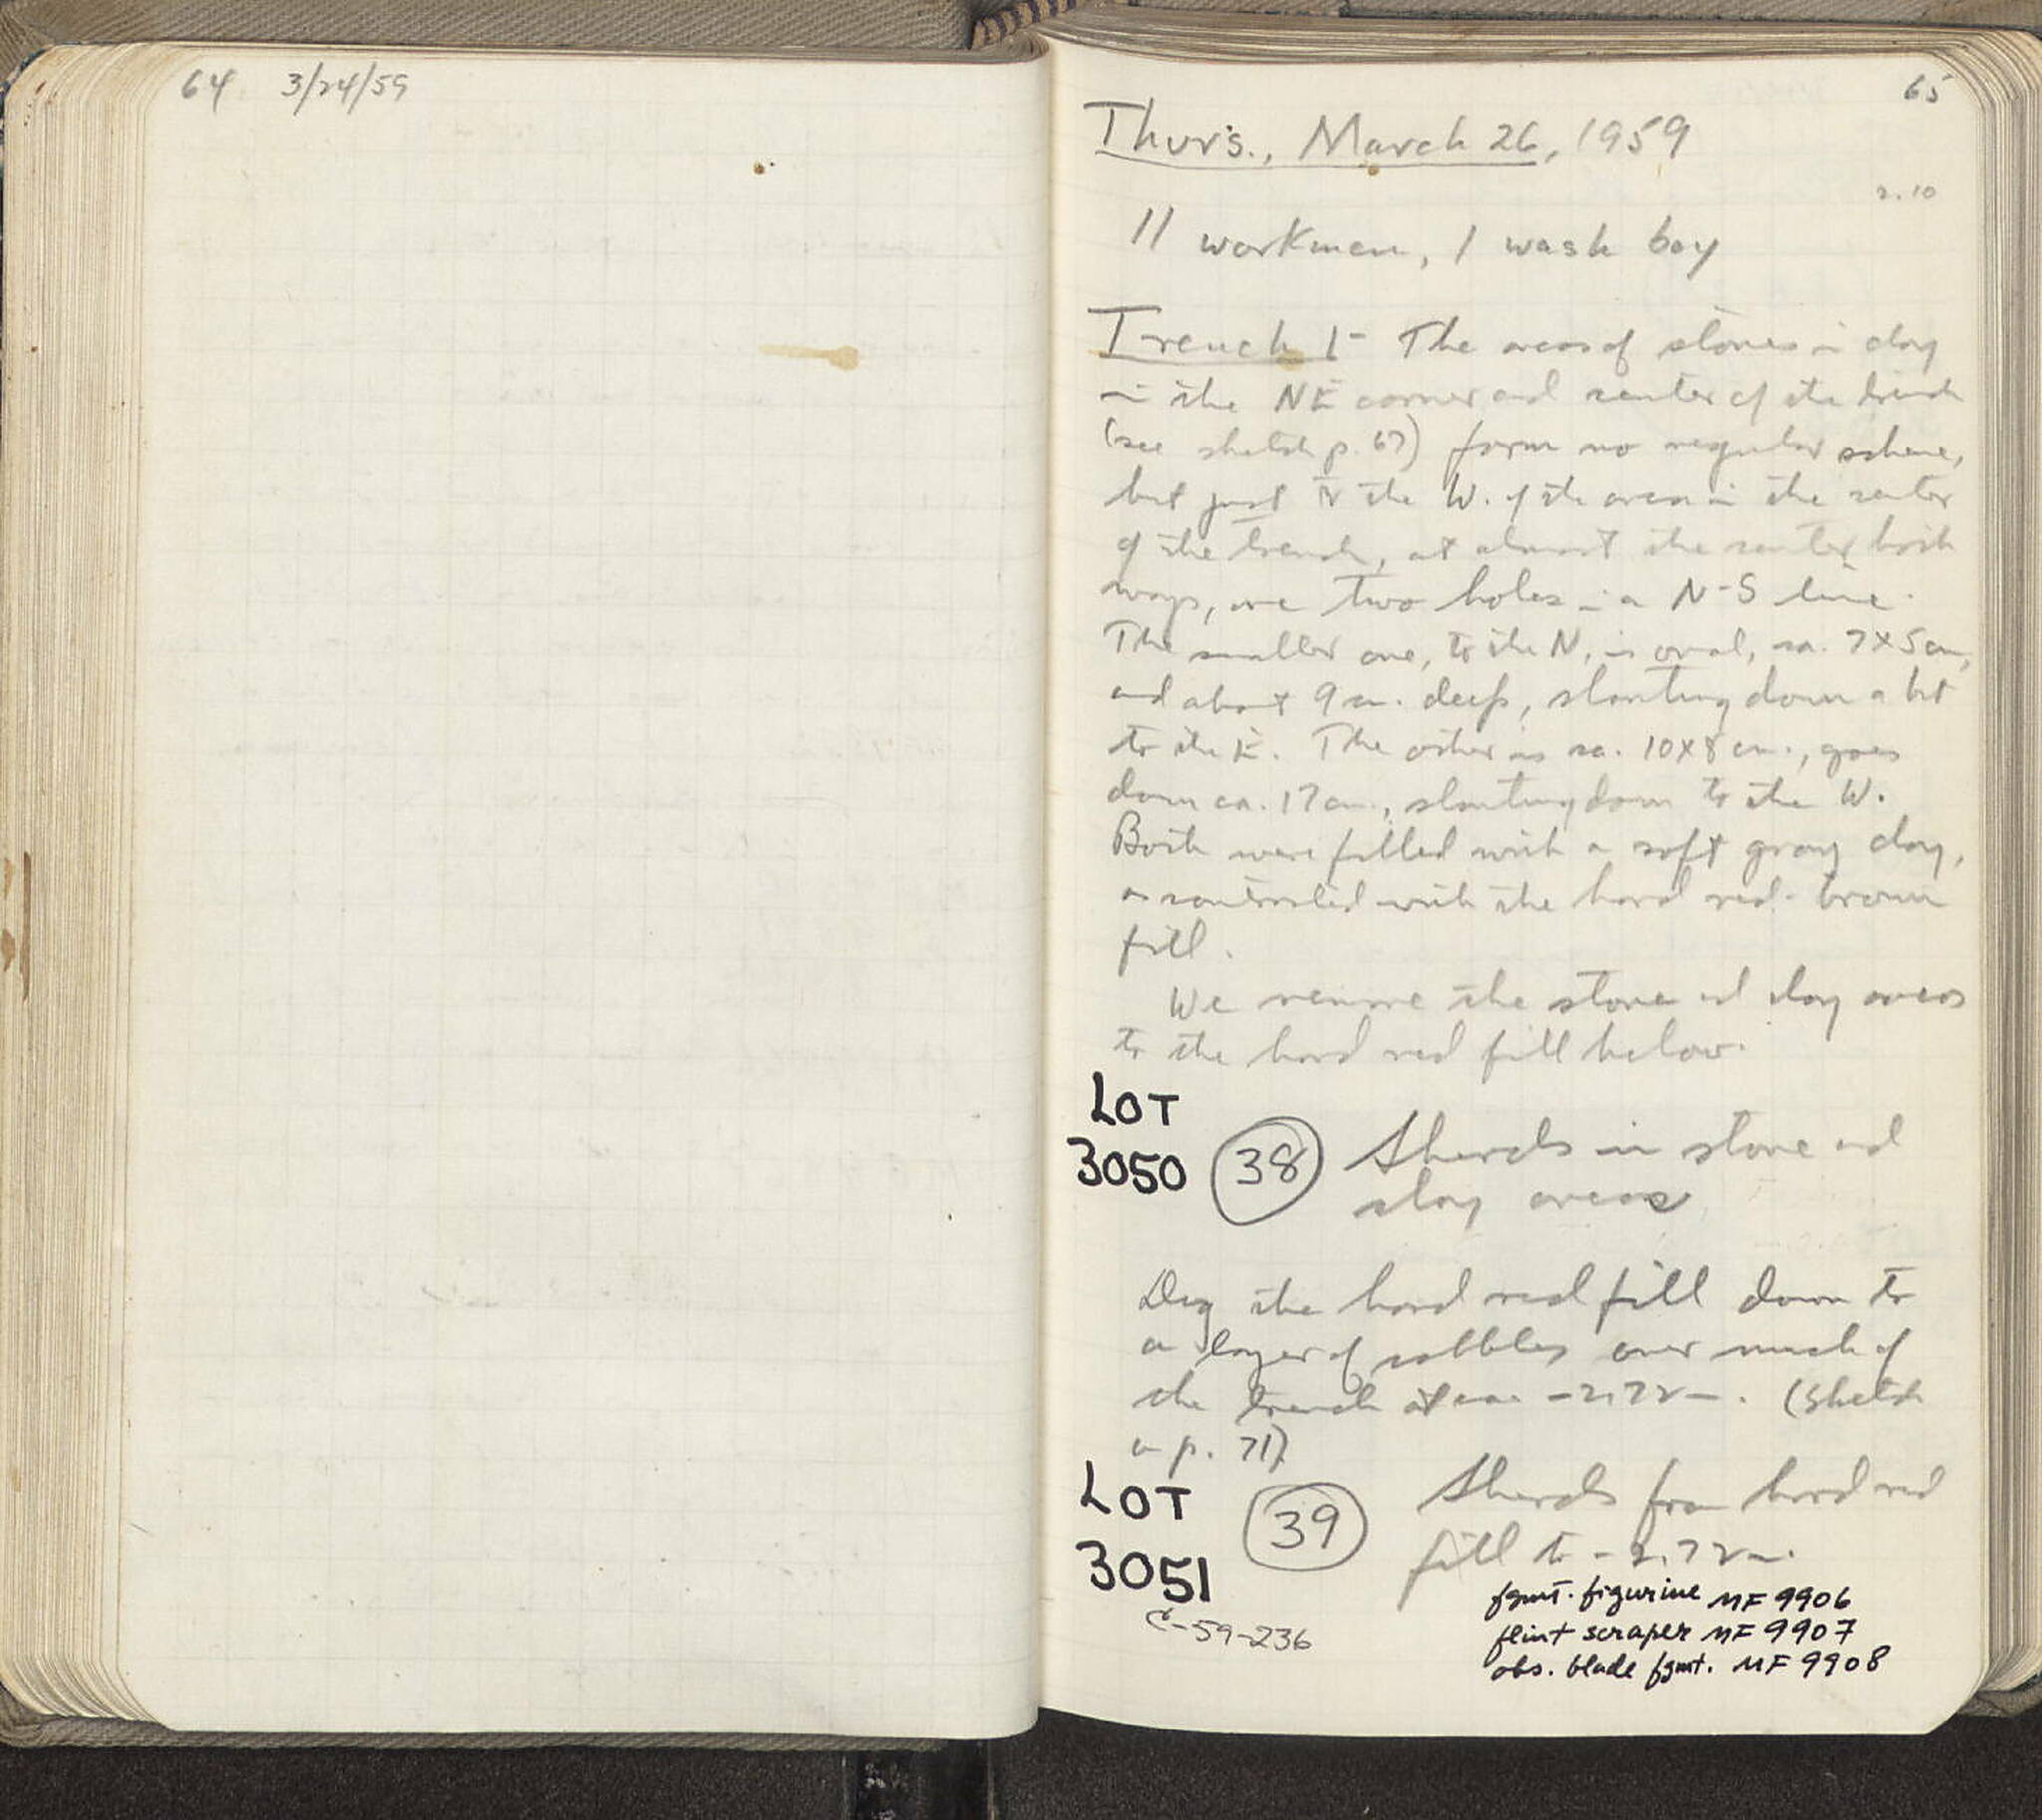 64 3/24/59
65
Thurs., March 26, 1959
2.10
11 workmen, 1 wash boy
Trench 1- The areas of stones in clay
in the NE corner and center of the trench
(see sketch p. 67) form no regular scheme,
but just to the W. of the area in the center
of the trench, at almost the center both
ways, are two holes in a N-S line.
The smaller one, to the N, is oval, ca. 7x5 cm,
and about 9 cm. deep, slanting down a bit
to the E. The other is ca. 10x8 cm., goes
down ca. 17 cm., slanting down to the W.
Both were filled with a soft gray clay,
as contrasted with the hard red-brown
fill.
We remove the stone and clay areas
to the hard red fill below.
LOT
3050 38 Sherds in stone and
clay areas
Dig the hard red fill down to
a layer of cobbles over much of
the trench at ca. -2.72 m. (Sketch
on p. 71)
LOT
3051 39 Sherds from hard red
fill to -2.72 m.
fgmt. figurine MF 9906
flint scraper MF 9907
obs. blade fgmt. MF 9908
C-59-236